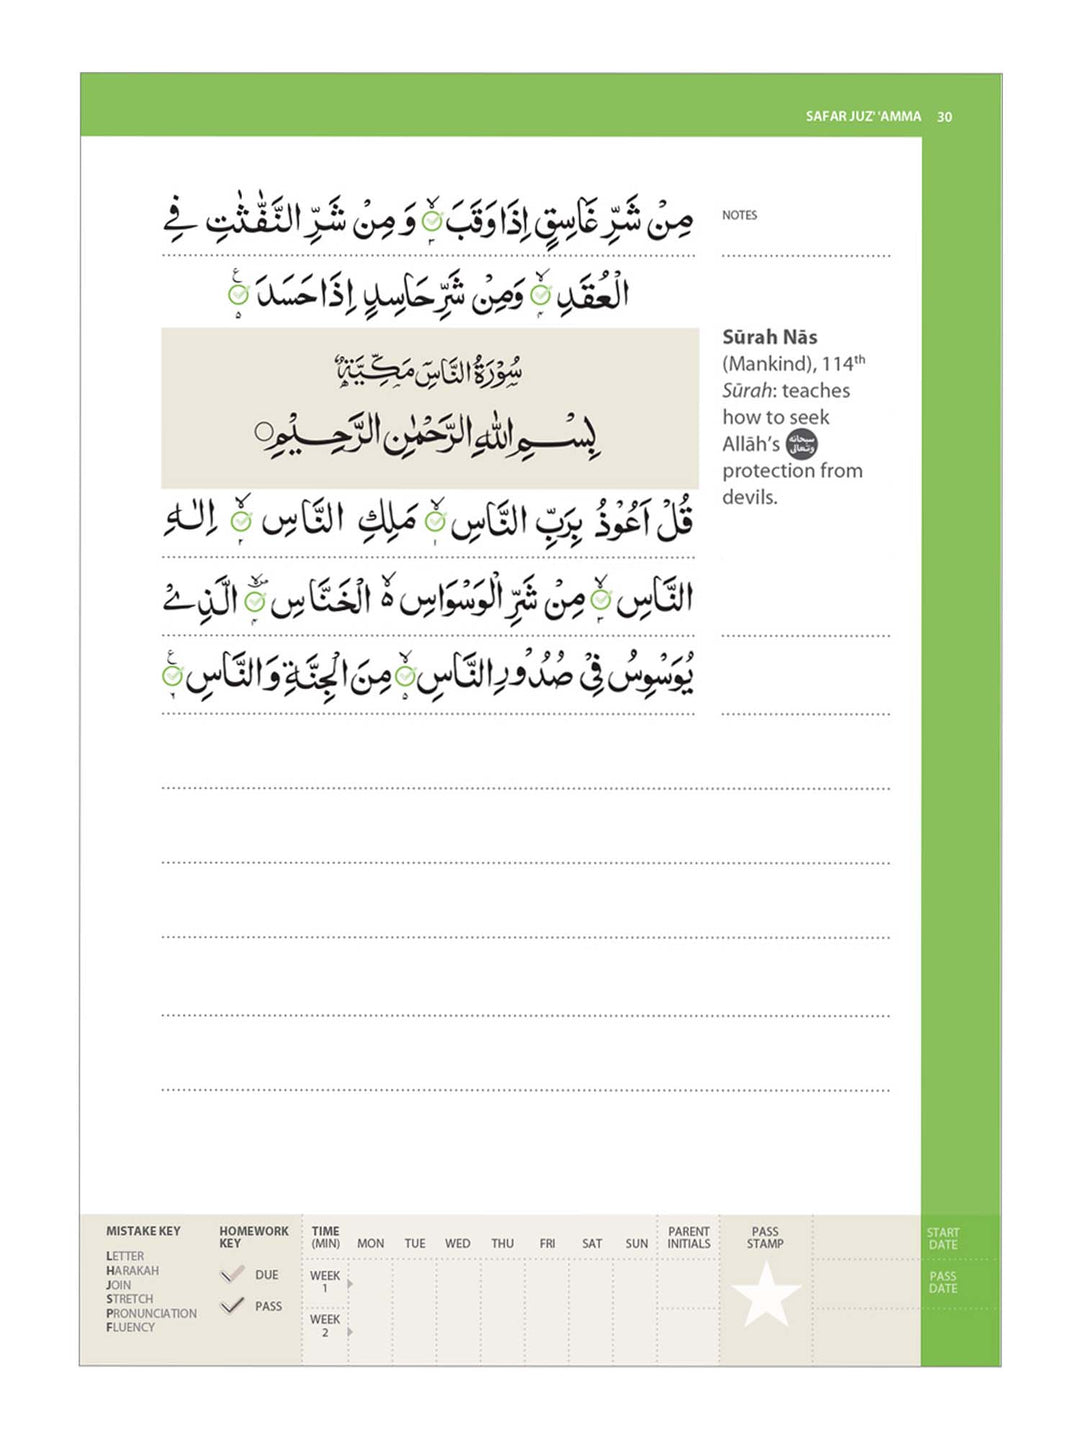 SAFAR JUZ' 'AMMA 30
مِنْ شَرِّ غَاسِقٍ اِذَا وَقَبَ ۙ۳ وَ مِنْ شَرِّ النَّفّٰثٰتِ فِی
NOTES
الْعُقَدِ ۙ۴ وَمِنْ شَرِّ حَاسِدٍ اِذَا حَسَدَ ۠۵
سُوْرَةُ النَّاسِ مَكِّیَّةٌ
بِسْمِ اللّٰهِ الرَّحْمٰنِ الرَّحِیْمِ ○
Sūrah Nās
(Mankind), 114th
Sūrah: teaches
how to seek
Allāh's سبحانه وتعالى
protection from
devils.
قُلْ اَعُوْذُ بِرَبِّ النَّاسِ ۙ۱ مَلِكِ النَّاسِ ۙ۲ اِلٰهِ
النَّاسِ ۙ۳ مِنْ شَرِّ الْوَسْوَاسِ ۙ۬ الْخَنَّاسِ ۪ۙ۴ الَّذِیْ
یُوَسْوِسُ فِیْ صُدُوْرِ النَّاسِ ۙ۵ مِنَ الْجِنَّةِ وَالنَّاسِ ۠۶
MISTAKE KEY
LETTER
HARAKAH
JOIN
STRETCH
PRONUNCIATION
FLUENCY
HOMEWORK
KEY
DUE
PASS
TIME
(MIN) MON TUE WED THU FRI SAT SUN
WEEK
1
WEEK
2
PARENT
INITIALS
PASS
STAMP
START
DATE
PASS
DATE